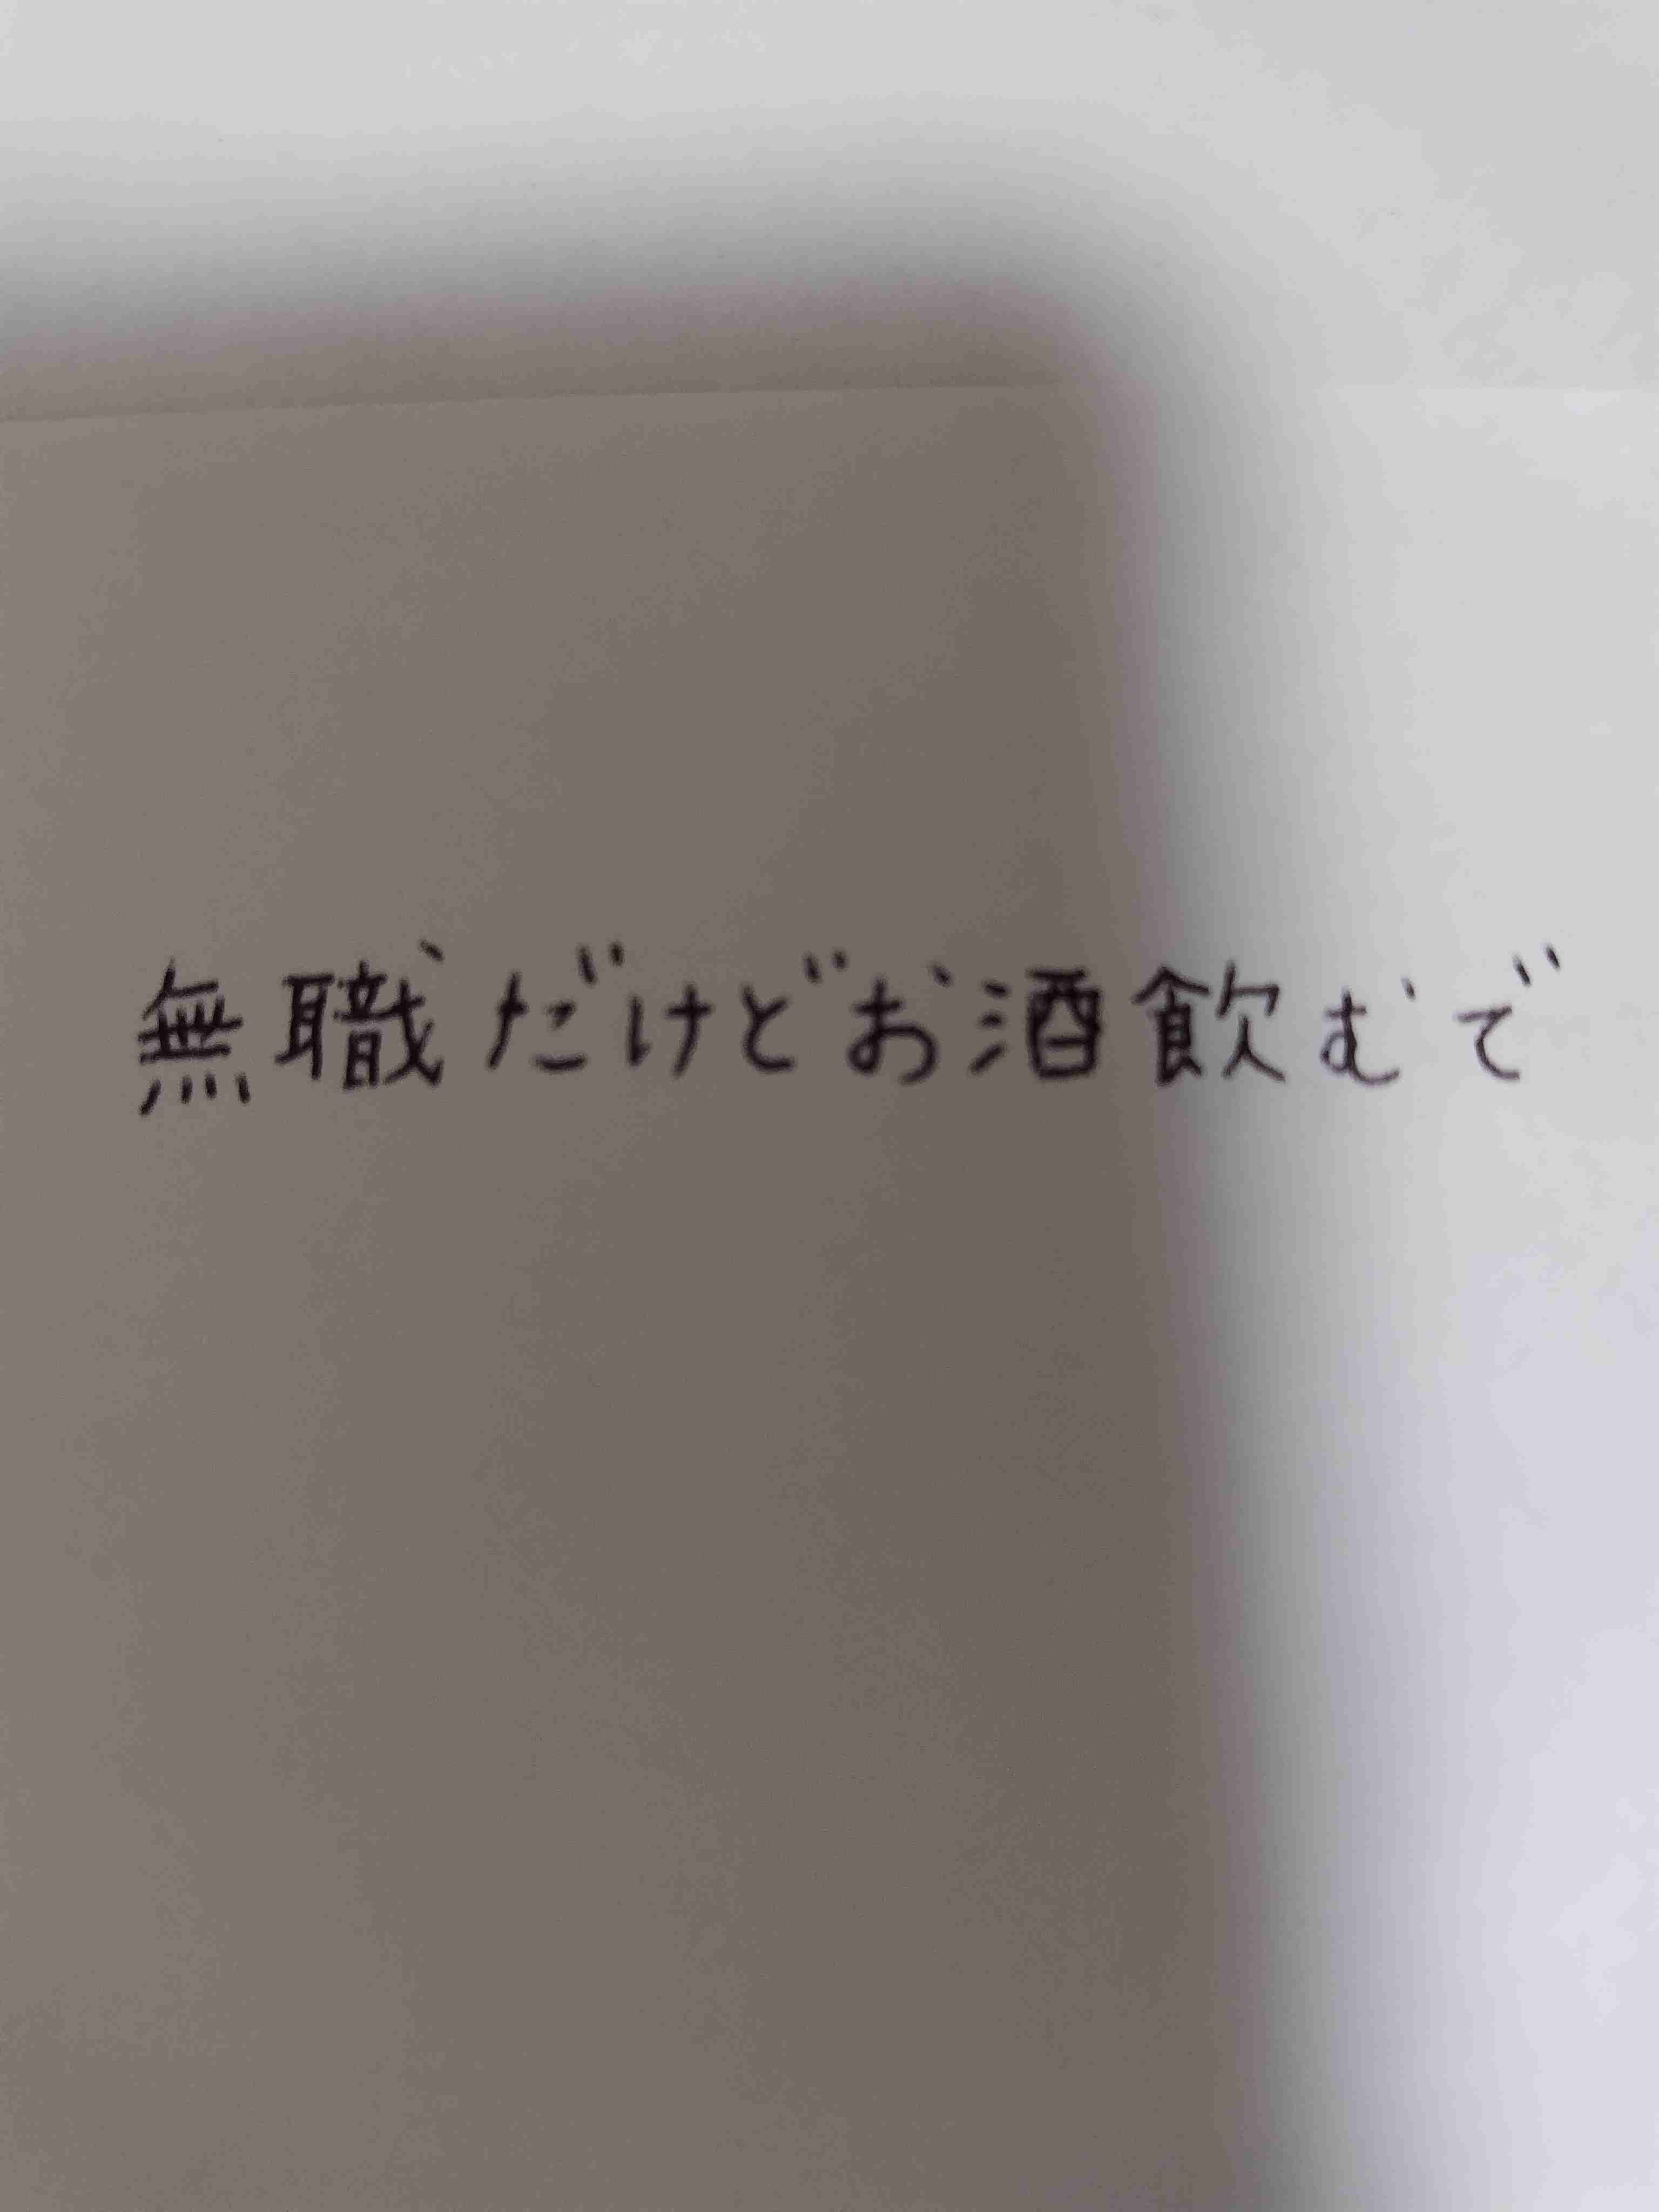 無職だけどお酒飲むで